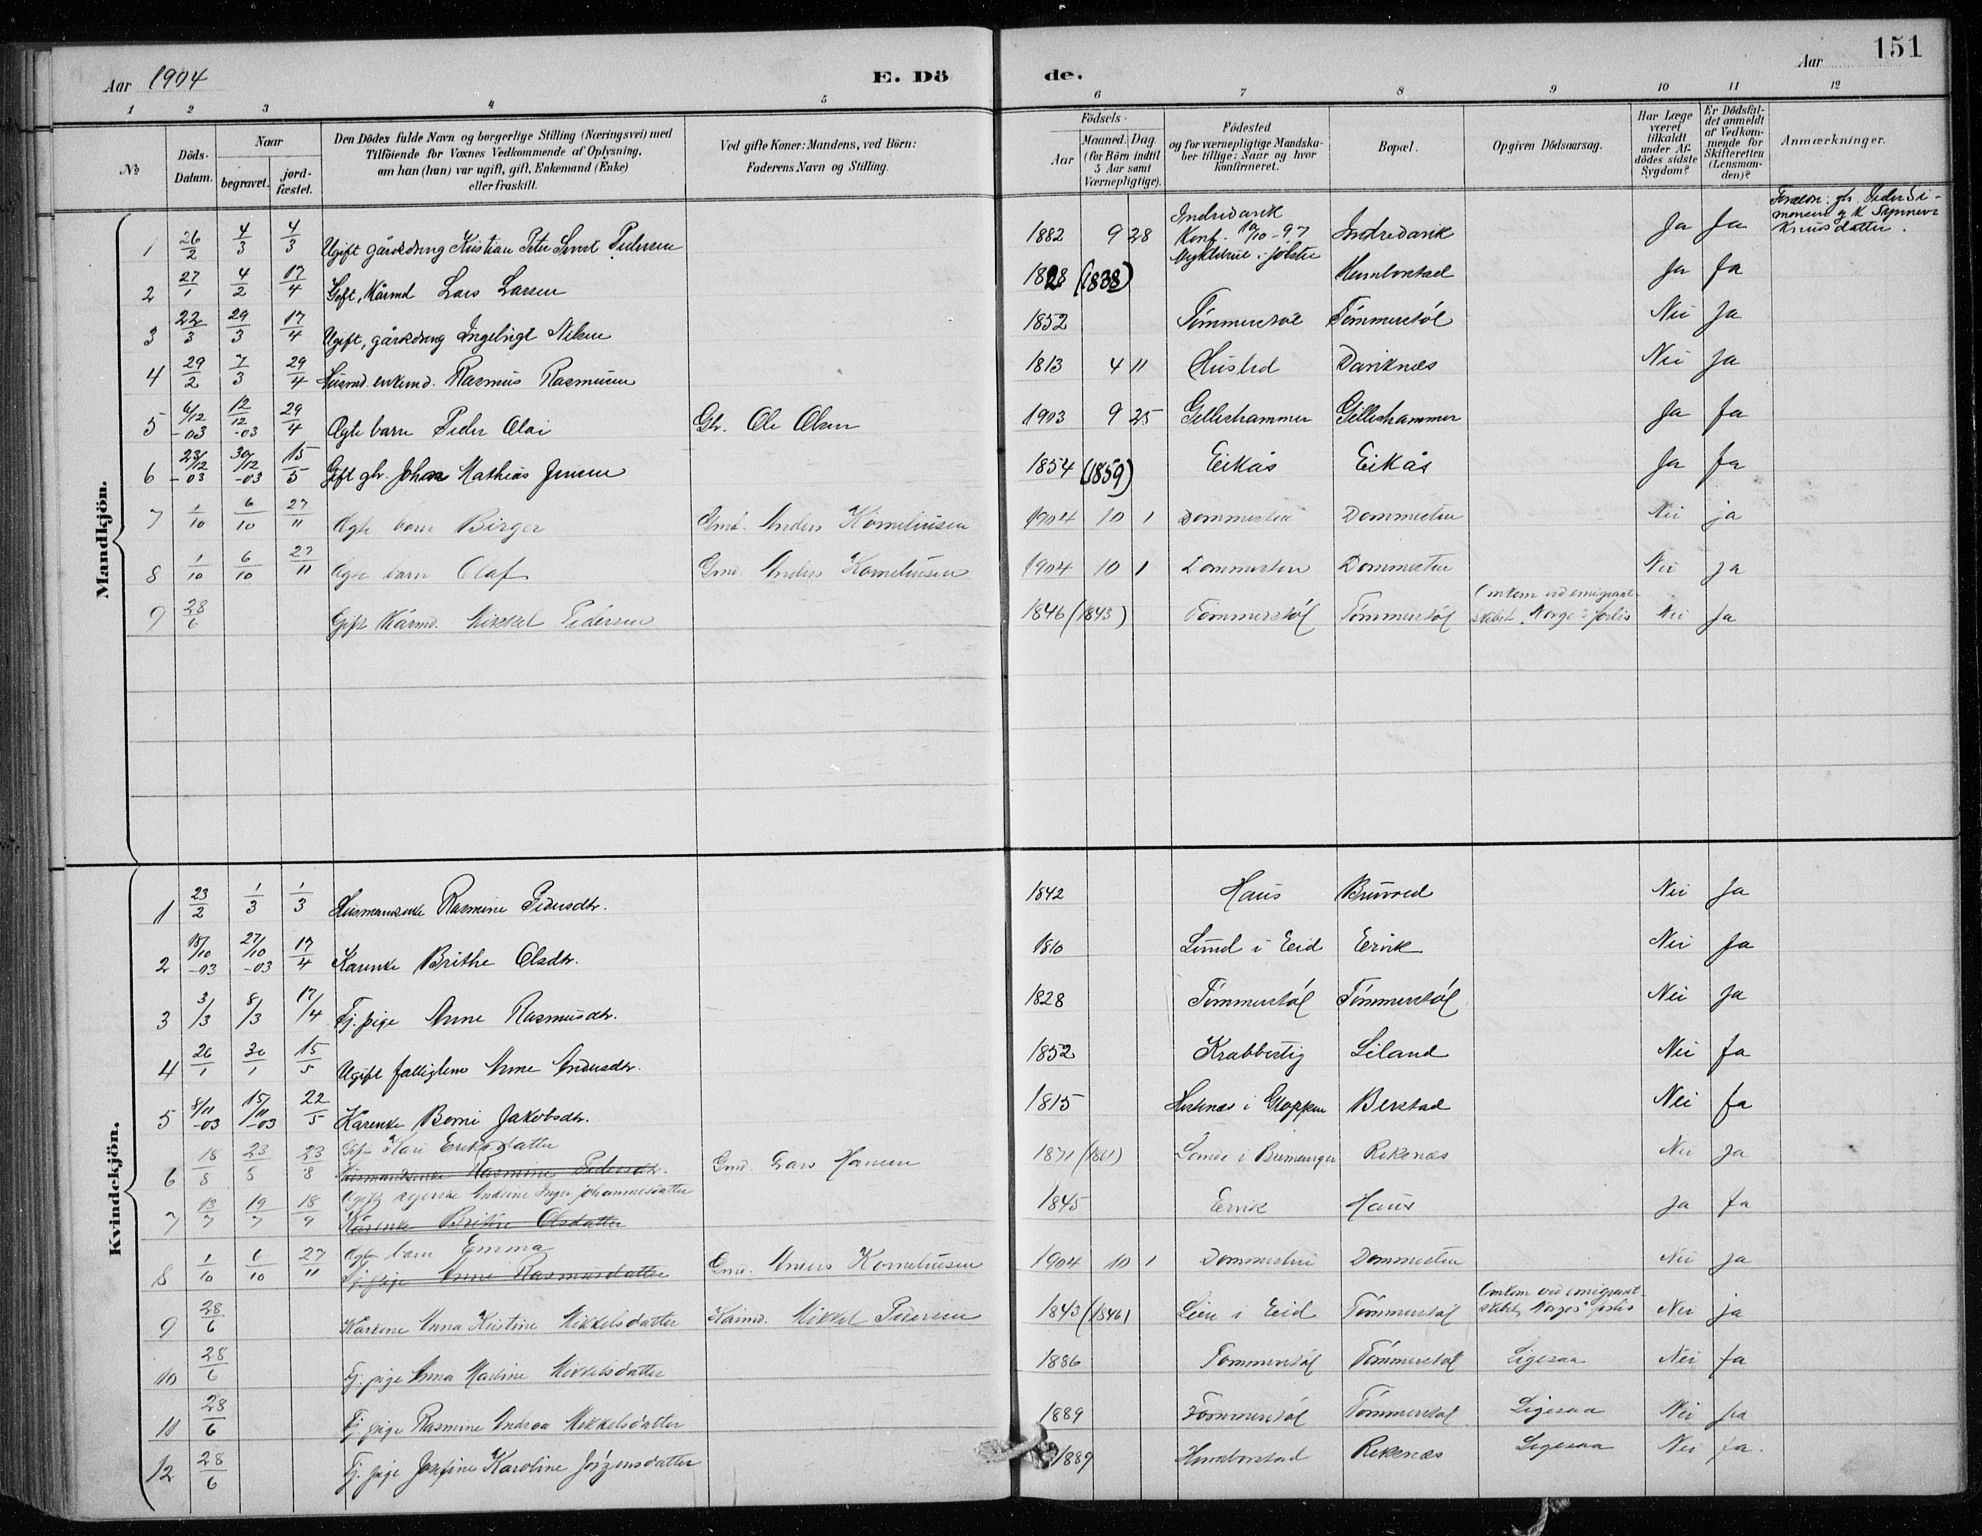 Aar 1904
E. Dö
de.
Aar
151
1 2 3 4 5 6 7 8 9 10 11 12
No
Döds-
Datum.
Naar
begravet.
jord-
fæstet.
Den Dödes fulde Navn og borgerlige Stilling (Næringsvei) med
Tilföiende for Voxnes Vedkommende af Oplysning,
om han (hun) var ugift, gift, Enkemand (Enke)
eller fraskilt.
Ved gifte Koner: Mandens, ved Börn:
Faderens Navn og Stilling.
Födsels-
Aar
Maaned. Dag.
(for Börn indtil
5 Aar samt
Værnepligtige).
Födested
og for værnepligtige Mandska-
ber tillige: Naar og hvor
konfirmeret.
Bopæl.
Opgiven Dödsaarsag.
Har Læge
været
tilkaldt
under Af-
dödes sidste
Sygdom?
Er Dödsfal-
det anmeldt
af Vedkom-
mende for
Skifteretten
(Lensman-
den)?
Anmærkninger.
Mandkjön.
1 26/2 4/3 4/3 Ugift gårdsdreng Kristian Peter Pedersen 1882 9 28 Indrevik Konf. 10/10-97 i Jølster Indrevik Ja Ja
2 27/1 4/2 17/4 Gift, Kårmd Lars Larsen 1828 (1838) Humborstad Ja Ja
3 22/3 29/3 17/4 Ugift, gårdsdreng Ingebrigt Nilsen 1852 Tømmerstøl Tømmerstøl Nei Ja
4 29/2 7/3 29/4 Husmd. enkemd. Rasmus Rasmusen 1813 4 11 Husted Daviknæs Nei Ja
5 6/12-03 12/12-03 29/4 Ægte barn Peder Olai Gbr. Ole Olsen 1903 9 25 Gelleshammer Gelleshammer Ja Ja
6 23/12-03 30/12-03 15/5 Gift gbr. Johan Mathias Jensen 1854 (1859) Eikås Eikås Ja Ja
7 1/10 6/10 27/11 Ægte barn Birger Gmd. Anders Korneliusen 1904 10 1 Dommesten Dommesten Nei ja
8 1/10 6/10 27/11 Ægte barn Olaf Gmd. Anders Korneliusen 1904 10 1 Dommesten Dommesten Nei ja
9 28/6 Gift Kårmd. Mikkel Pedersen 1846 (1843) Tømmerstøl Tømmerstøl Omkom ved emigrant-
skibet "Norge"s forlis Nei Ja
Kvindekjön.
1 23/2 1/3 1/3 Husmandsenke Rasmine Pedersdtr. 1842 Haus Nei Ja
2 18/10-03 27/10-03 17/4 Kårenke Brithe Olsdtr. 1810 Lund i Eid Ervik Nei Ja
3 3/3 8/3 17/4 Tj. pige Anne Rasmusdtr. 1828 Tømmerstøl Tømmerstøl Nei Ja
4 26/1 30/1 15/5 Ugift fattiglem Anne Andersdtr. 1852 Krabbestig Leland Nei Ja
5 8/11-03 15/11-03 22/5 Kårenke Jakobsdtr. 1815 i Gloppen Berstad Nei Ja
6 18/8 23/8 23/8 Gift Kari Eriksdatter Gmd. Lars Hansen 1871 (1861) i Bremanger Rekenæs Nei Ja
Husmandsenke Rasmine Pedersdtr.
7 13/7 19/7 18/9 Ugift Andrine Inger Johannesdatter 1845 Ervik Haus Ja Ja
Kårenke Brithe Olsdatter
8 1/10 6/10 27/11 Ægte barn Emma Gmd. Anders Korneliusen 1904 10 1 Dommesten Dommesten Nei ja
Tj. pige Anne Rasmusdatter
9 28/6 Kårkone Anna Kristine Mikkelsdatter Kårmd. Mikkel Pedersen 1843 (1846) i Eid Tømmerstøl Omkom ved emigrant-
skibet "Norges" forlis Nei ja
10 28/6 Tj. pige Anna Martine Mikkelsdatter 1886 Tømmerstøl Tømmerstøl Ligesaa Nei Ja
11 28/6 Tj. pige Rasmine Andrea Mikkelsdatter 1889 Tømmerstøl Tømmerstøl Ligesaa Nei ja
12 28/6 Tj. pige Josefine Karoline Jørgensdatter 1889 Humborstad Rekenæs Ligesaa Nei ja.